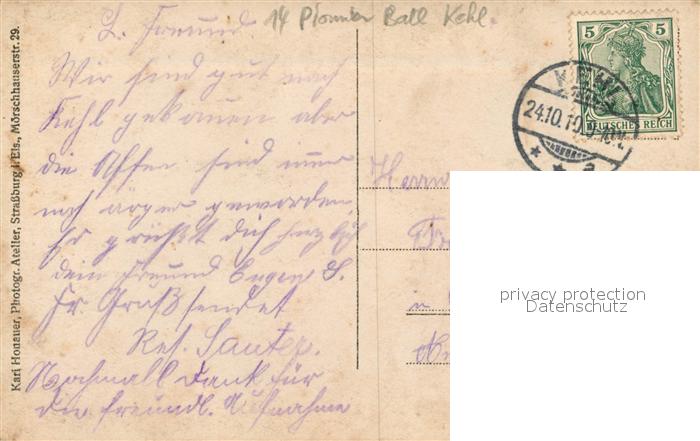 14 Pionnier Batl Kehl.
L. Freund.
Wir sind gut nach
Kehl gekomen aber
die Affen sind imer
noch ärger geworden.
Es grüßt dich herzlich
dein Freund Eugen S.
Fr. Gruß sendet
Res. Sauter.
Nochmall Dank für
die freundl. Aufnahme
Karl Honauer, Photogr. Atelier, Straßburg i. Els., Mörschhauserstr. 29.
5 5
DEUTSCHES REICH
24.10.10
Herrn
privacy protection
Datenschutz